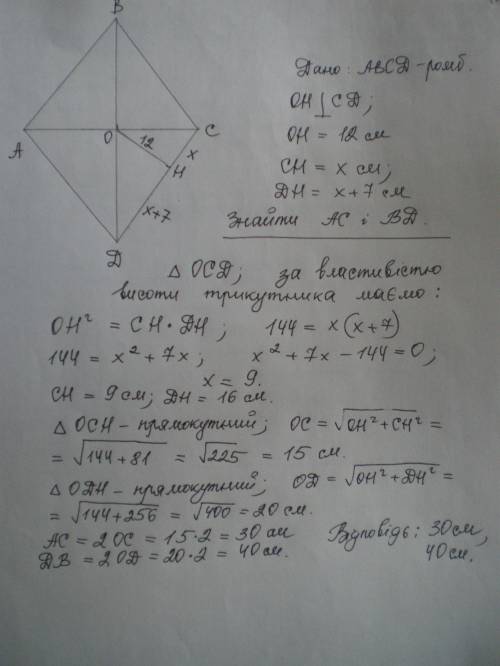 B
Дано: ABCD-ромб.
OH ⊥ CD;
A
O
12
C
x
H
OH = 12 см
CH = x см;
x+7
DH = x+7 см
D
Знайти AC і BD.
△ OCD; за властивістю
висоти трикутника маємо:
OH² = CH·DH; 144 = x(x+7)
144 = x² + 7x; x² + 7x - 144 = 0;
x = 9.
CH = 9 см; DH = 16 см.
△ OCH - прямокутний; OC = √OH²+CH² =
= √144+81 = √225 = 15 см.
△ ODH - прямокутний; OD = √OH²+DH² =
= √144+256 = √400 = 20 см.
AC = 2OC = 15·2 = 30 см Відповідь: 30см,
DB = 2OD = 20·2 = 40см. 40см.